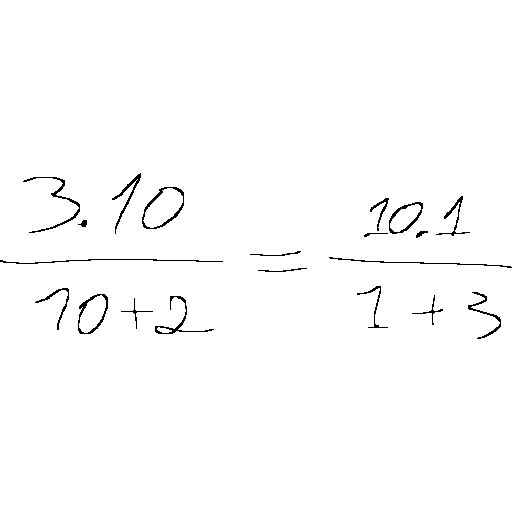 3.10 / 10+2 = 10.1 / 1+3